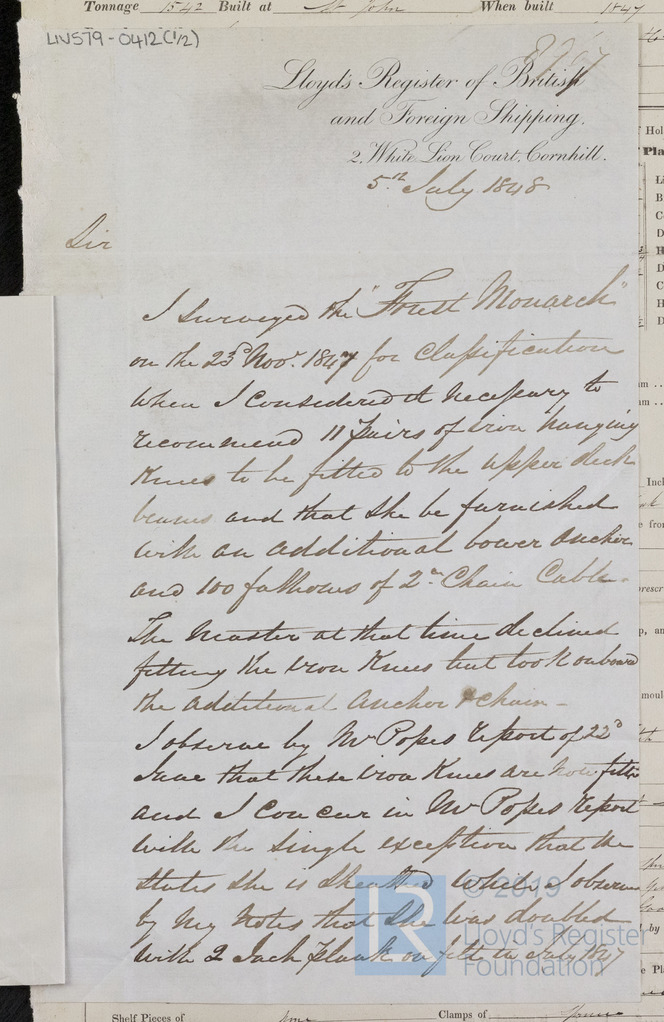 Tonnage 1542 Built at St John When built 1847
LNS79-0412(1/2)
Lloyd's Register of British
and Foreign Shipping.
2, White Lion Court, Cornhill.
5th July 1848
Sir
I surveyed the "Forest Monarch"
on the 23d Novr. 1847 for Classification
when I considered it necessary to
recommend 11 pairs of iron hanging
Knees to be fitted to the upper deck
beams and that she be furnished
with an additional bower anchor
and 100 fathoms of 2in Chain Cable.
The Master at that time declined
fitting the iron Knees but took onboard
the additional anchor & chain -
I observe by Mr Popes report of 22d
June that these iron Knees are now fitted
and I concur in Mr Popes report
with the single exception that he
states she is sheathed while I observe
by my notes that she was doubled
with 2 Inch plank on felt in July 1847
© 2019
LR
Lloyd's Register
Foundation
Shelf Pieces of Clamps of Spruce